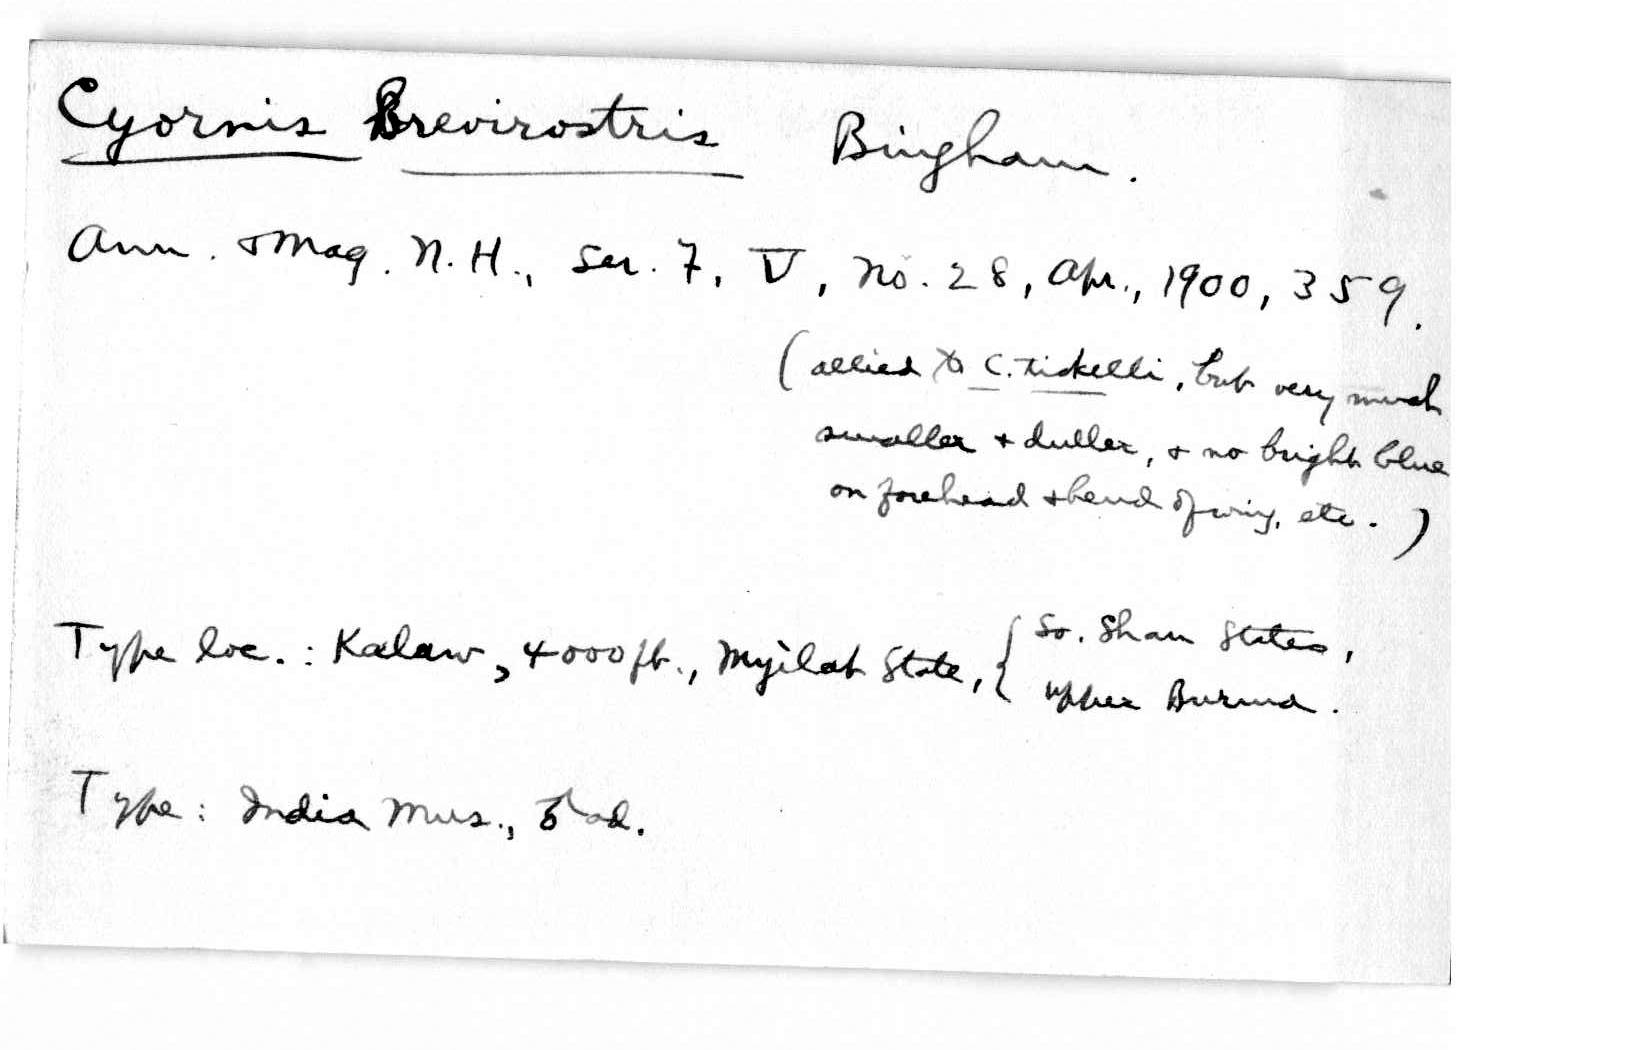 Cyornis Brevirostris Bingham.
Ann. & Mag. N. H., Ser. 7, V, No. 28, Apr., 1900, 359.
(allied to C. tickelli, but very much
smaller & duller, & no bright blue
on forehead & bend of wing, etc.)
Type loc. : Kalaw, 4000 ft., Myilat State, { So. Shan States,
Upper Burma.
Type : India Mus., ♂ ad.